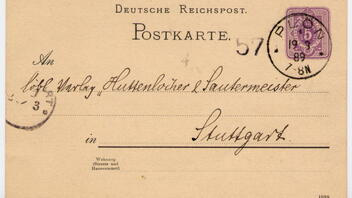 DEUTSCHE REICHSPOST.
POSTKARTE.
57
PLÖN
19 3
89
7-8N
5
An
löbl. Verlag „Huttenlocher & Sautermeister
RT
3
in Stuttgart
Wohnung
(Strasse und
Hausnummer)